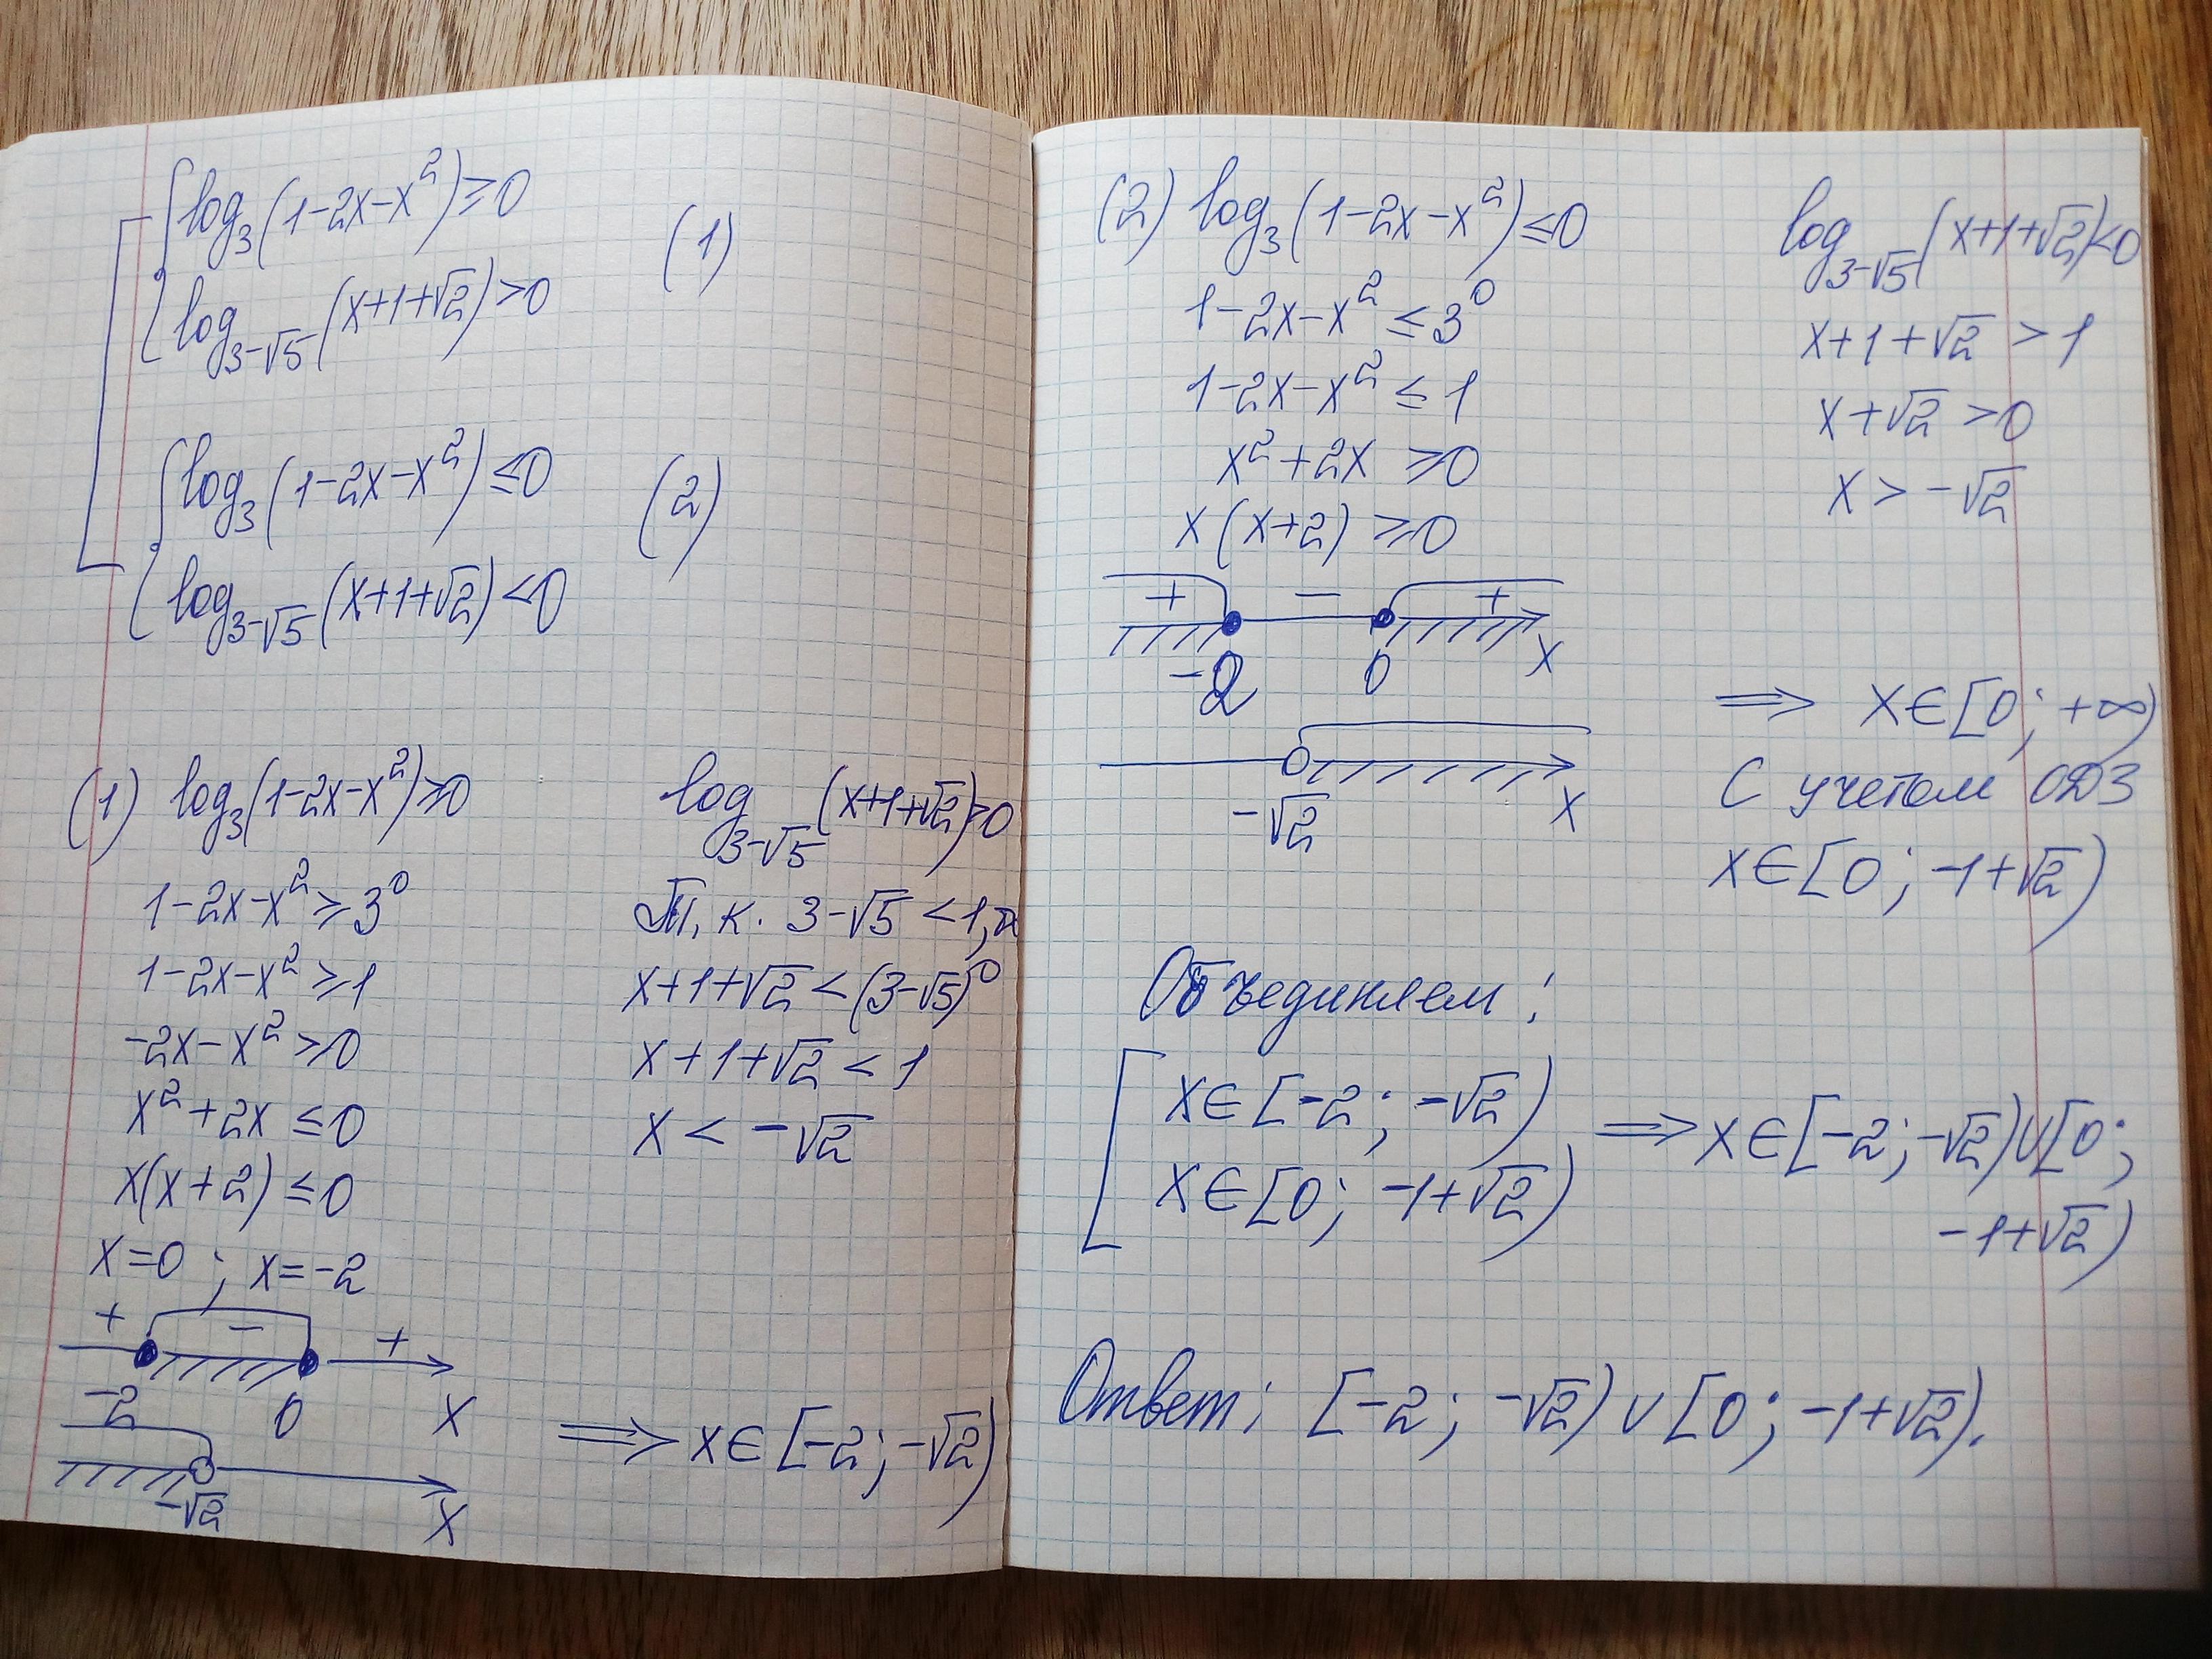 log₃(1-2x-x²)≥0
(1)
log₃₋√₅(x+1+√2)>0
log₃(1-2x-x²)≤0
(2)
log₃₋√₅(x+1+√2)<0
(1) log₃(1-2x-x²)≥0
1-2x-x²≥3⁰
1-2x-x²≥1
-2x-x²≥0
x²+2x≤0
x(x+2)≤0
x=0; x=-2
+ - +
-2 0 x
-√2 x
log₃₋√₅(x+1+√2)>0
Т. к. 3-√5<1,
x+1+√2<(3-√5)⁰
x+1+√2<1
x<-√2
⇒ x∈[-2; -√2)
(2) log₃(1-2x-x²)≤0
1-2x-x²≤3⁰
1-2x-x²≤1
x²+2x≥0
x(x+2)≥0
+ - +
-2 0 x
-√2 x
log₃₋√₅(x+1+√2)<0
x+1+√2>1
x+√2>0
x>-√2
⇒ x∈[0; +∞)
С учетом ОДЗ
x∈[0; -1+√2)
Объединяем:
x∈[-2; -√2)
x∈[0; -1+√2)
⇒ x∈[-2; -√2)∪[0;
-1+√2)
Ответ: [-2; -√2)∪[0; -1+√2).